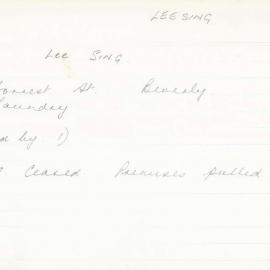 LEE SING
Lee SING.
Forrest St. Beverly
Laundry
d by 1)
Ceased. Premises pulled